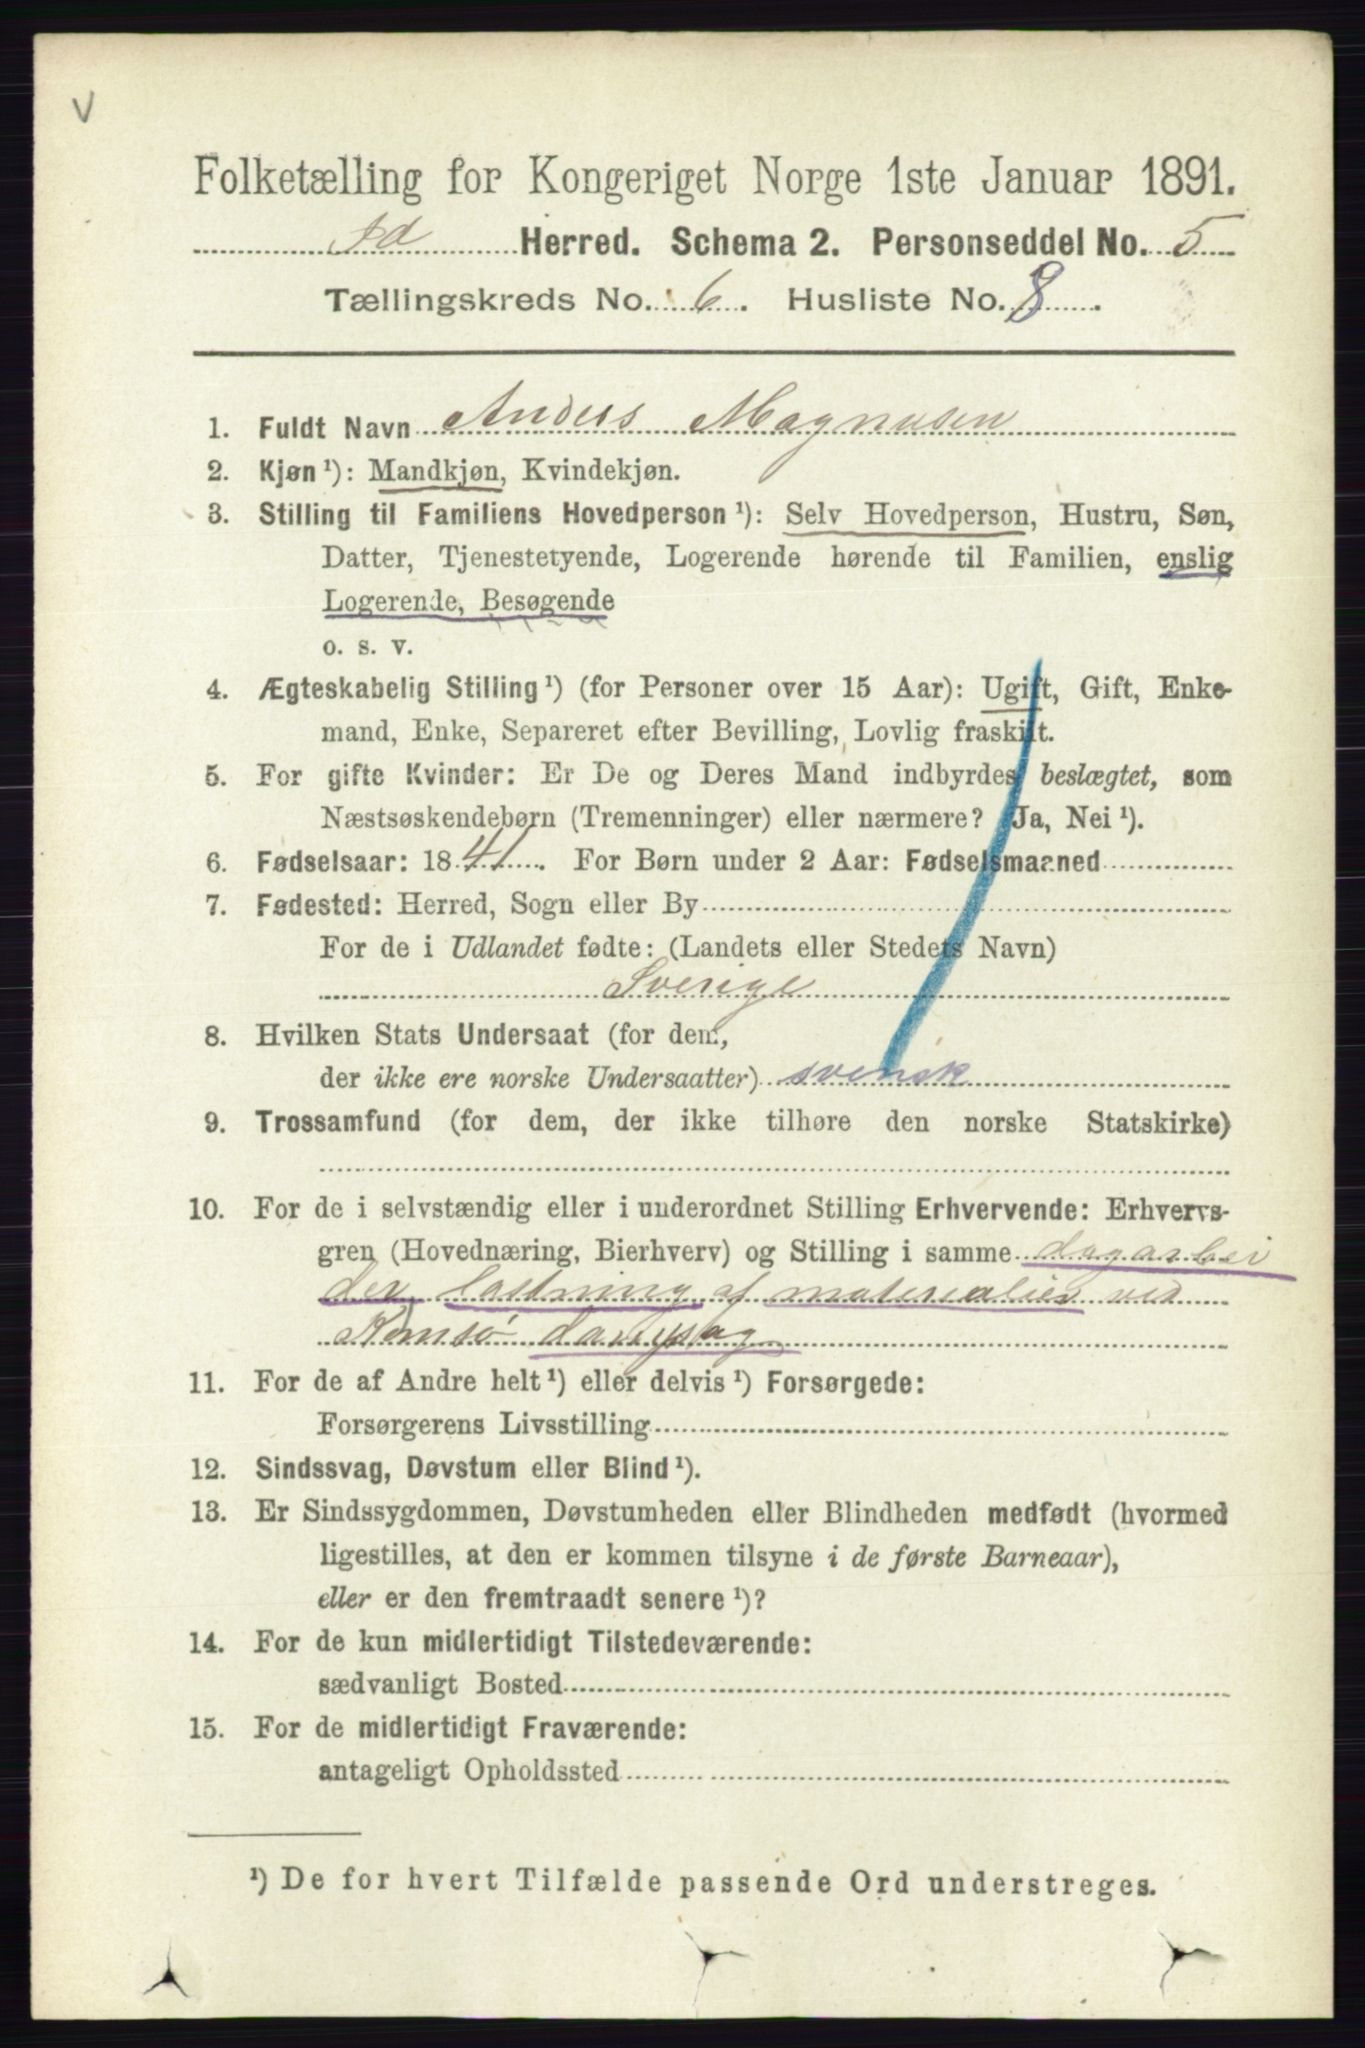 V
Folketælling for Kongeriget Norge 1ste Januar 1891.
Id Herred. Schema 2. Personseddel No. 5
Tællingskreds No. 6. Husliste No. 8.
1. Fuldt Navn Anders Magnusen
2. Kjøn ¹): Mandkjøn, Kvindekjøn.
3. Stilling til Familiens Hovedperson ¹): Selv Hovedperson, Hustru, Søn,
Datter, Tjenestetyende, Logerende hørende til Familien, enslig
Logerende, Besøgende
o. s. v.
4. Ægteskabelig Stilling ¹) (for Personer over 15 Aar): Ugift, Gift, Enke-
mand, Enke, Separeret efter Bevilling, Lovlig fraskilt.
5. For gifte Kvinder: Er De og Deres Mand indbyrdes beslægtet, som
Næstsøskendebørn (Tremenninger) eller nærmere? Ja, Nei ¹).
6. Fødselsaar: 1841. For Børn under 2 Aar: Fødselsmaaned
7. Fødested: Herred, Sogn eller By
For de i Udlandet fødte: (Landets eller Stedets Navn)
Sverige
8. Hvilken Stats Undersaat (for dem,
der ikke ere norske Undersaatter) svensk
9. Trossamfund (for dem, der ikke tilhøre den norske Statskirke)
10. For de i selvstændig eller i underordnet Stilling Erhvervende: Erhvervs-
gren (Hovednæring, Bierhverv) og Stilling i samme dagarbei
der lastning af materialier ved
dampsag
11. For de af Andre helt ¹) eller delvis ¹) Forsørgede:
Forsørgerens Livsstilling
12. Sindssvag, Døvstum eller Blind ¹).
13. Er Sindssygdommen, Døvstumheden eller Blindheden medfødt (hvormed
ligestilles, at den er kommen tilsyne i de første Barneaar),
eller er den fremtraadt senere ¹)?
14. For de kun midlertidigt Tilstedeværende:
sædvanligt Bosted
15. For de midlertidigt Fraværende:
antageligt Opholdssted
¹) De for hvert Tilfælde passende Ord understreges.